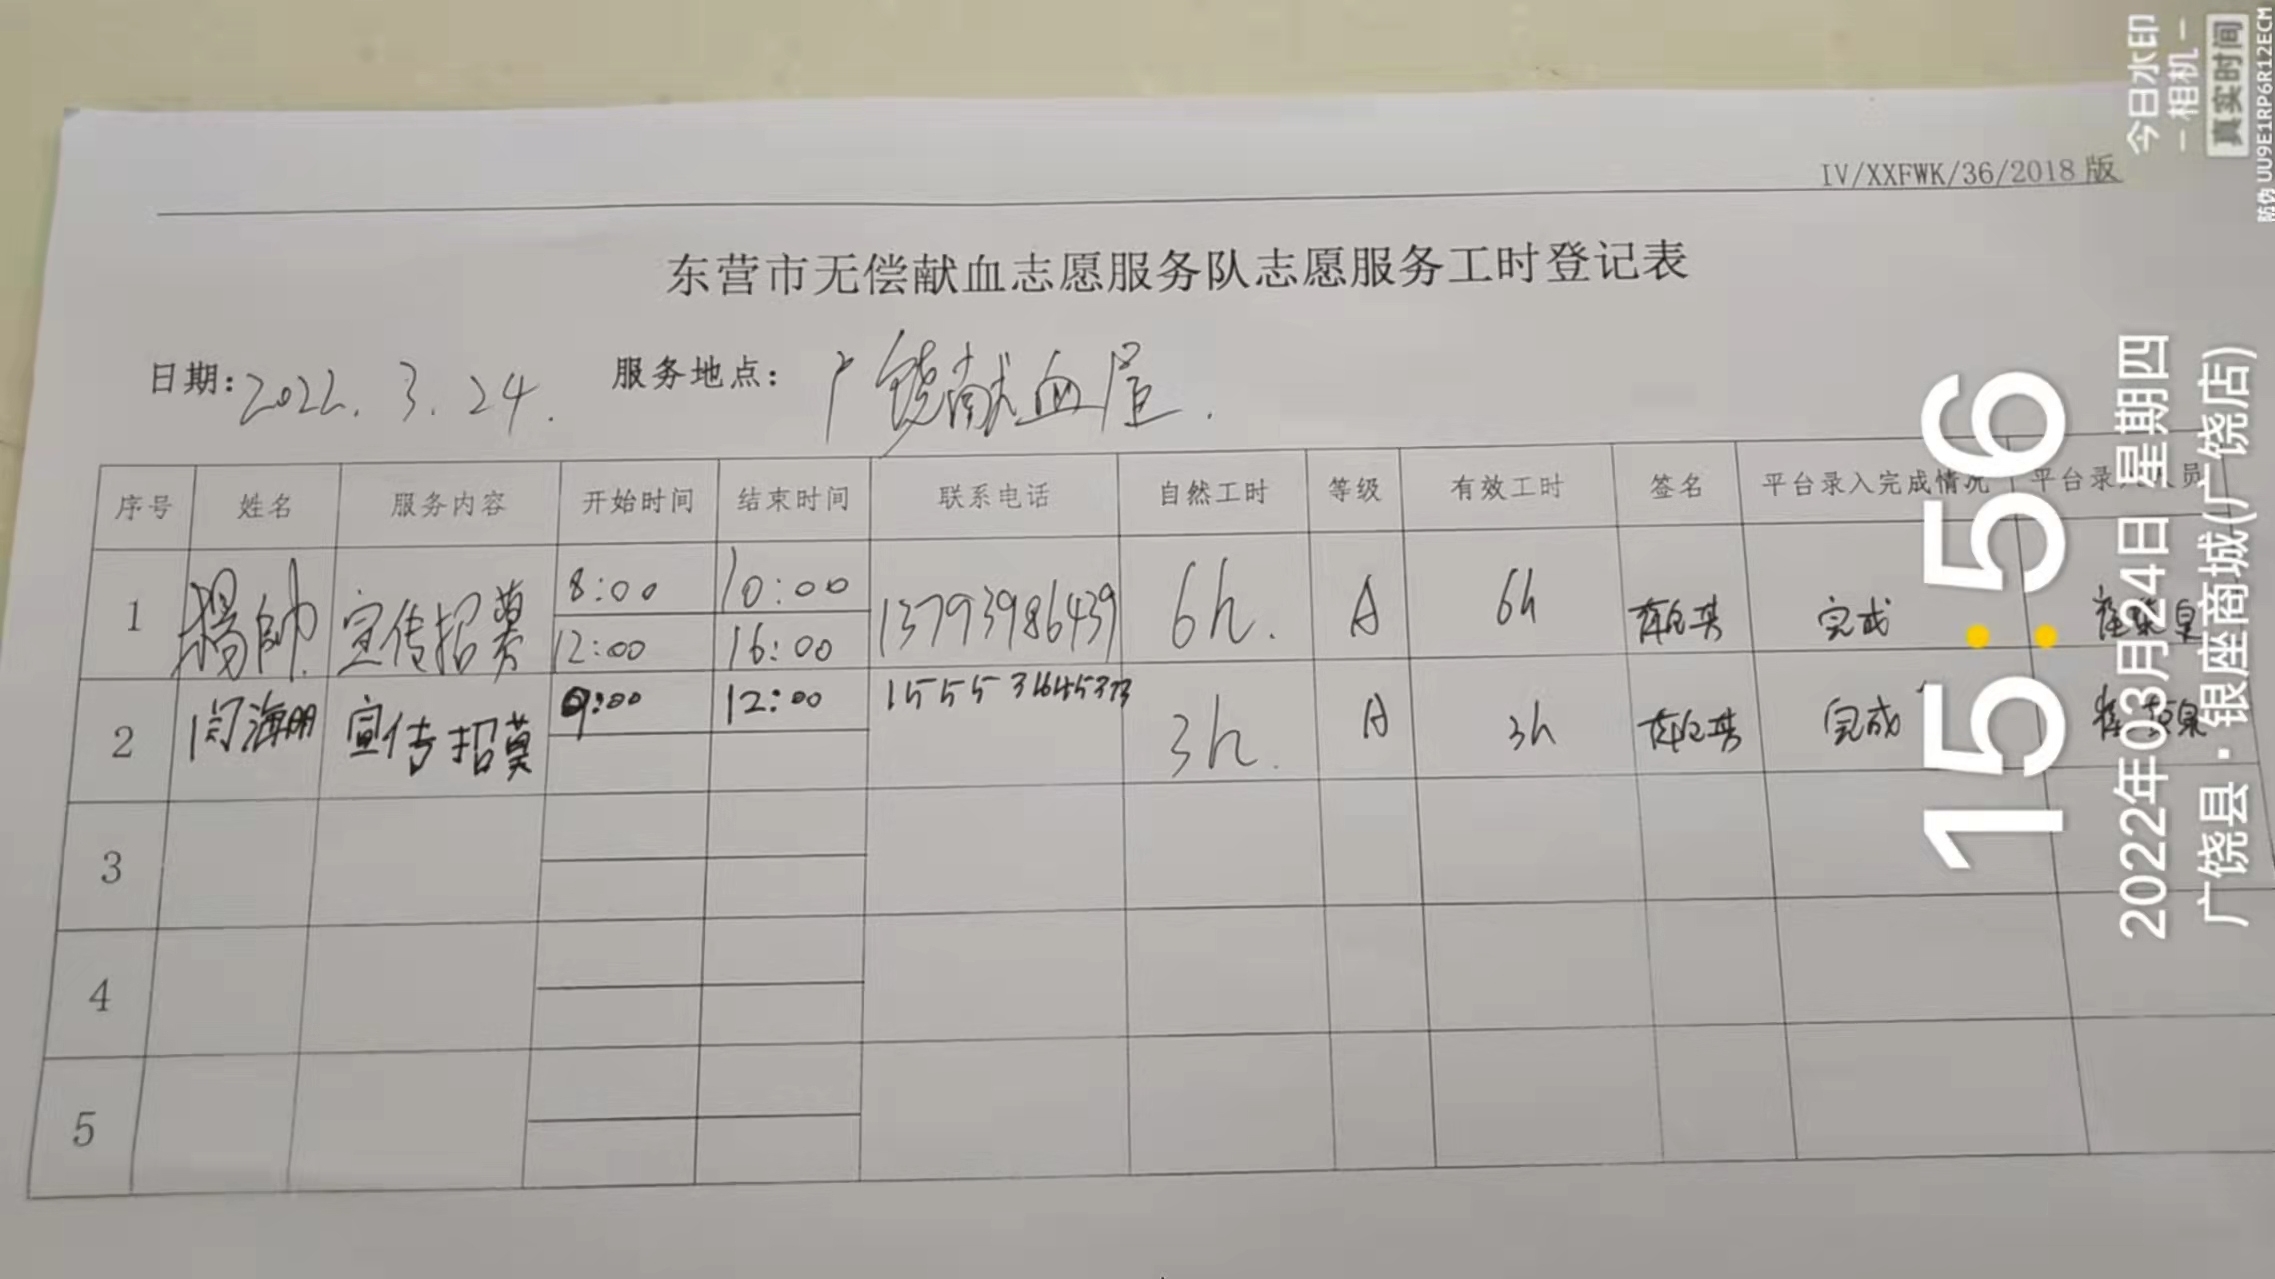 IV/XXFWK/36/2018 版
东营市无偿献血志愿服务队志愿服务工时登记表
日期: 2022. 3. 24. 服务地点: 广饶献血屋.
序号 姓名 服务内容 开始时间 结束时间 联系电话 自然工时 等级 有效工时 签名 平台录入完成情况 平台录入人员
1 杨帅 宣传招募 8:00 10:00 13793986439 6h. A 6h 完成
12:00 16:00
2 闫海明 宣传招募 9:00 12:00 3h. A 3h 完成
3
4
5
今日水印
-相机-
真实时间
防伪 UU9E1RP6R12ECM
15:56
2022年03月24日 星期四
广饶县·银座商城(广饶店)